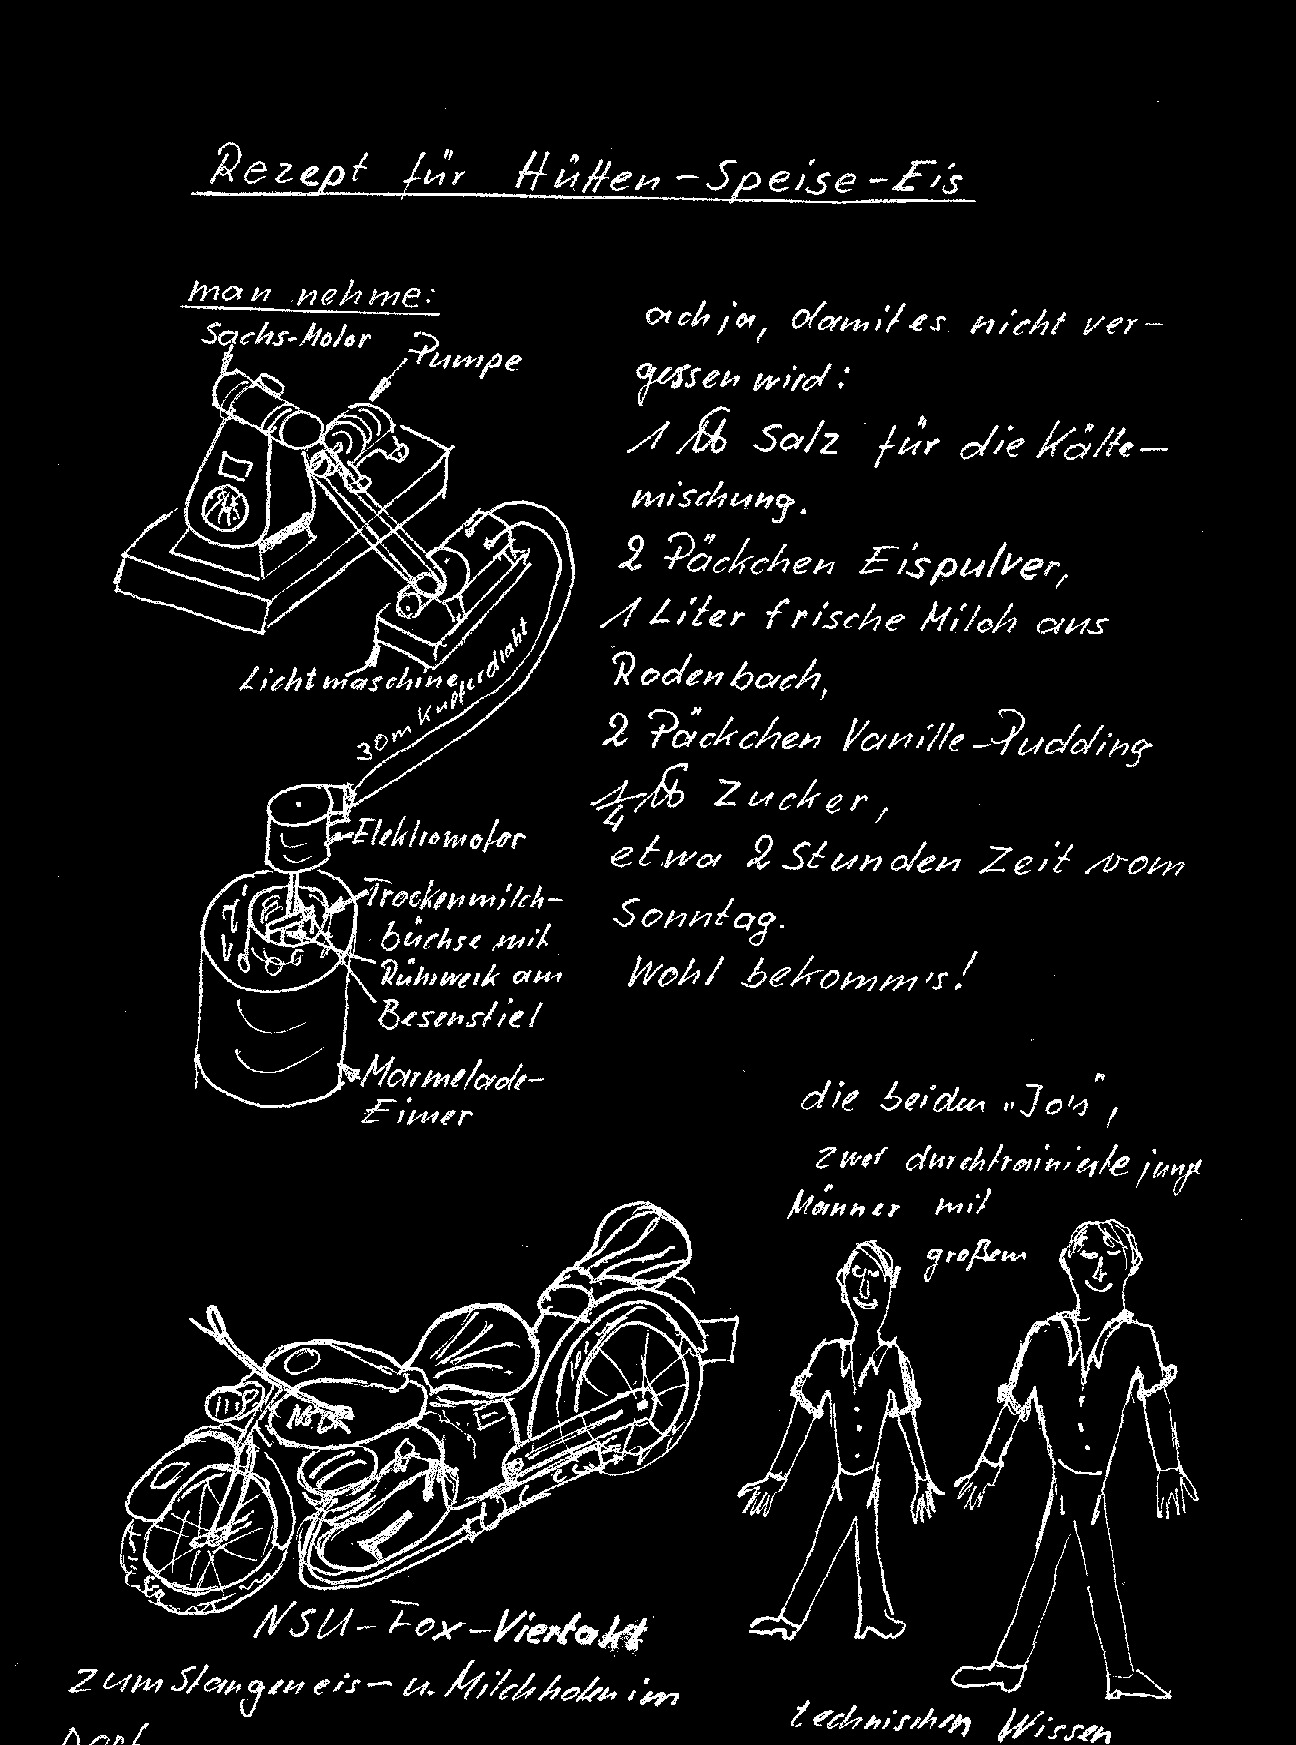 Rezept für Hütten-Speise-Eis
man nehme:
Sachs-Motor
Pumpe
Lichtmaschine
30m Kupferdraht
Elektromotor
Trockenmilch-
büchse mit
Rührwerk am
Besenstiel
Marmelade-
Eimer
ach ja, damit es nicht ver-
gessen wird:
1 ℔ Salz für die Kälte-
mischung.
2 Päckchen Eispulver,
1 Liter frische Milch aus
Rodenbach,
2 Päckchen Vanille-Pudding
1/4 ℔ Zucker,
etwa 2 Stunden Zeit vom
Sonntag.
Wohl bekomm's!
die beiden „Jo's",
zwei durchtrainierte junge
Männer mit
großem
technischen Wissen
NSU
NSU-Fox-Viertakt
zum Stangeneis- u. Milchholen im
Dorf